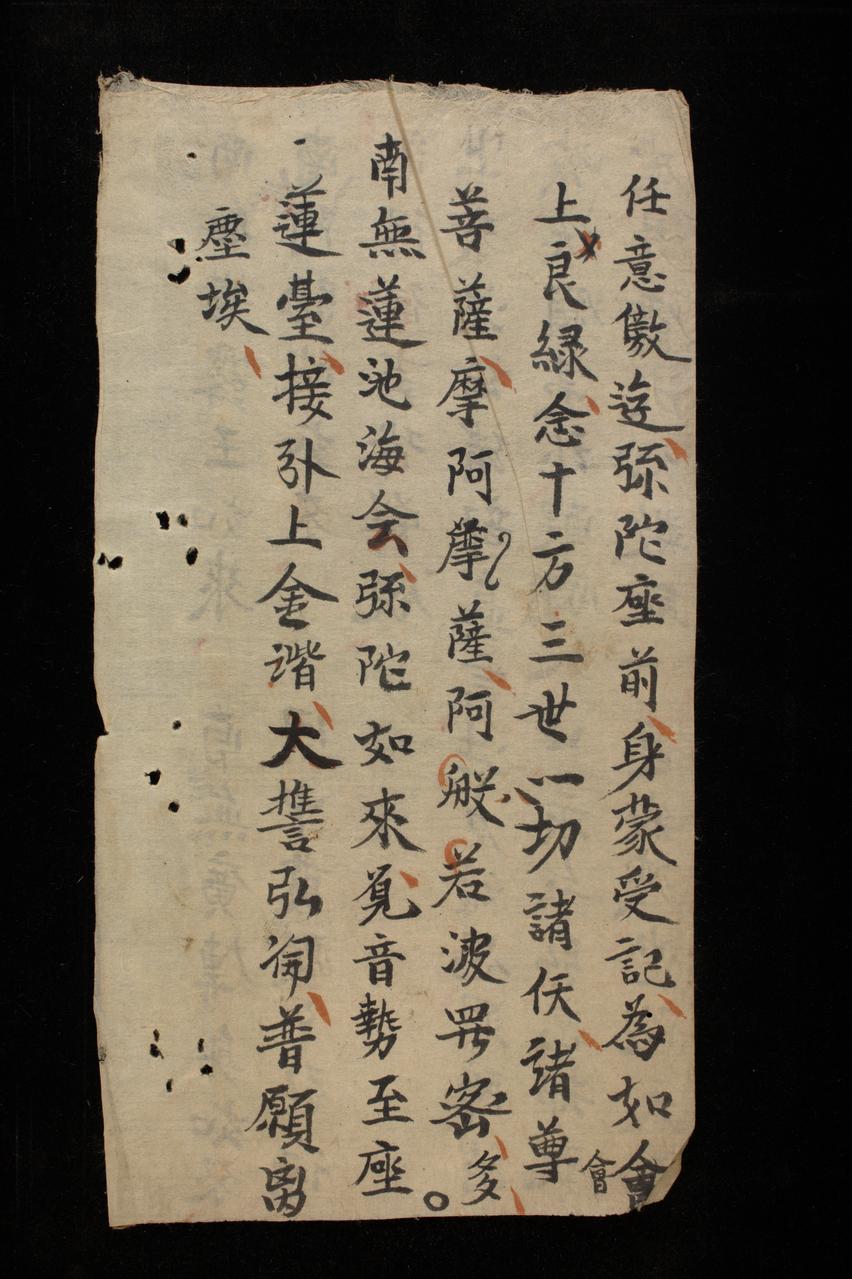 任意傲遊弥陀座前身蒙受記為如會會
上良緣念十方三世一切諸仸諸尊
菩薩摩阿摩薩阿般若波罗密多
南無蓮池海会弥陀如來覓音勢至座
蓮臺接引上金谐大誓弘開普願离
塵埃